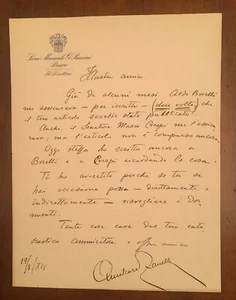 Liceo Musicale G. Rossini
Pesaro
Il Direttore
Illustre amico
Già da alcuni mesi Aldo Borelli
mi assicurava - per iscritto - (due volte) che
il tuo articolo sarebbe stato pubblicato.
Anche il Senatore Mario Crespi me l'assicu
rava; ma l'articolo non è comparso ancora.
Oggi stesso ho scritto ancora a
Borelli e a Crespi ricordando la cosa.
Ti ho avvertito perché se tu se
hai occasione possa - direttamente o
indirettamente - risvegliare i dor
mienti.
Tante cose care dal tuo entu
siastico ammiratore e aff.mo amico
Amilcare Zanella